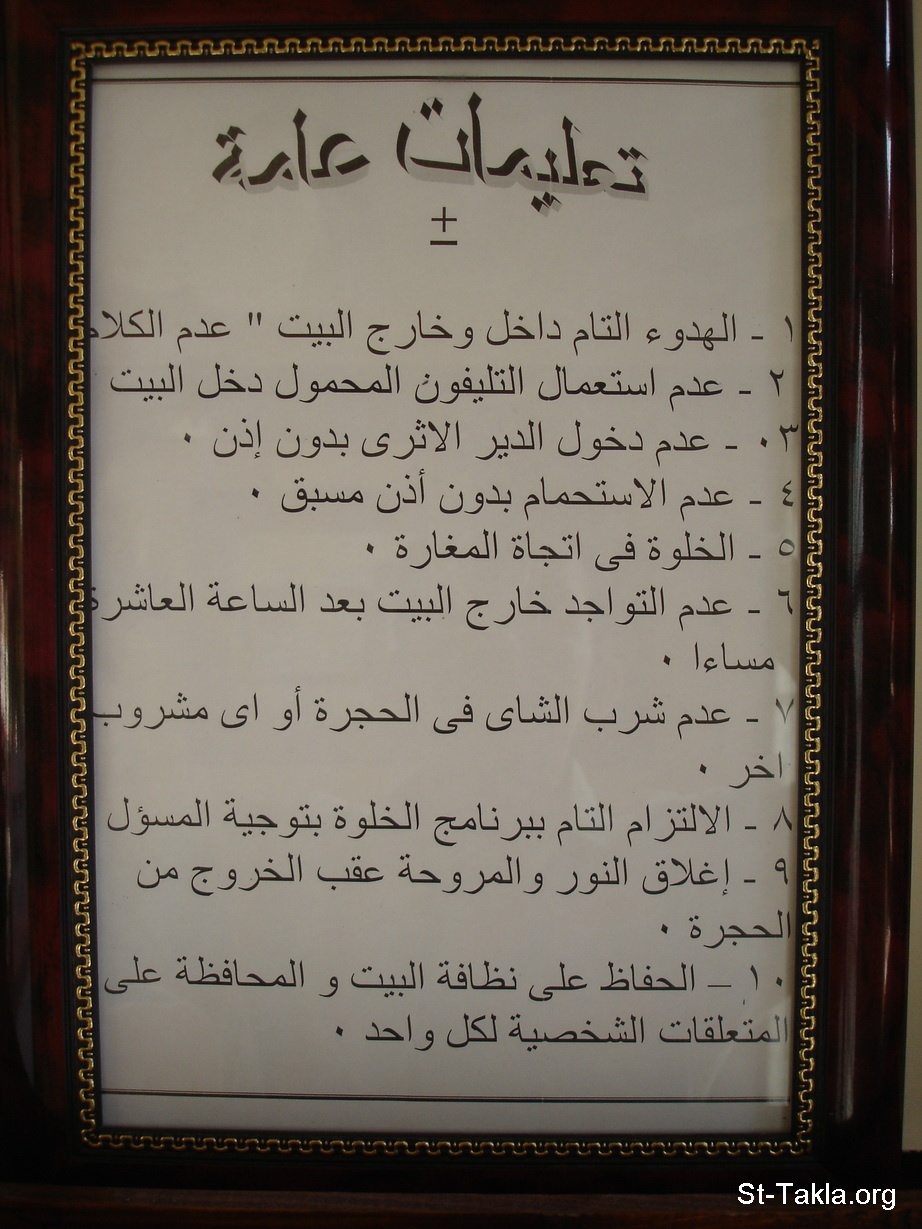 تعليمات عامة
±
١ - الهدوء التام داخل وخارج البيت " عدم الكلام
٢ - عدم استعمال التليفون المحمول دخل البيت
٣٠ - عدم دخول الدير الاثرى بدون إذن ٠
٤ - عدم الاستحمام بدون أذن مسبق ٠
٥ - الخلوة فى اتجاة المغارة ٠
٦ - عدم التواجد خارج البيت بعد الساعة العاشرة
مساءا ٠
٧ - عدم شرب الشاى فى الحجرة أو اى مشروب
اخر ٠
٨ - الالتزام التام ببرنامج الخلوة بتوجية المسؤل
٩ - إغلاق النور والمروحة عقب الخروج من
الحجرة ٠
١٠ – الحفاظ على نظافة البيت و المحافظة على
المتعلقات الشخصية لكل واحد ٠
St-Takla.org